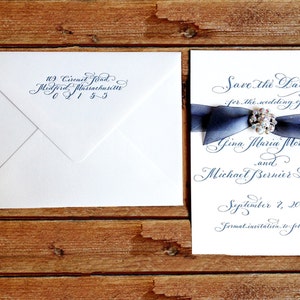 Medford, Massachusetts
0 2 1 5 5
Save the Da
for the wedding
Gina Maria Mo
and
Michael Bernier
September 7, 20
Formal invitation to fo